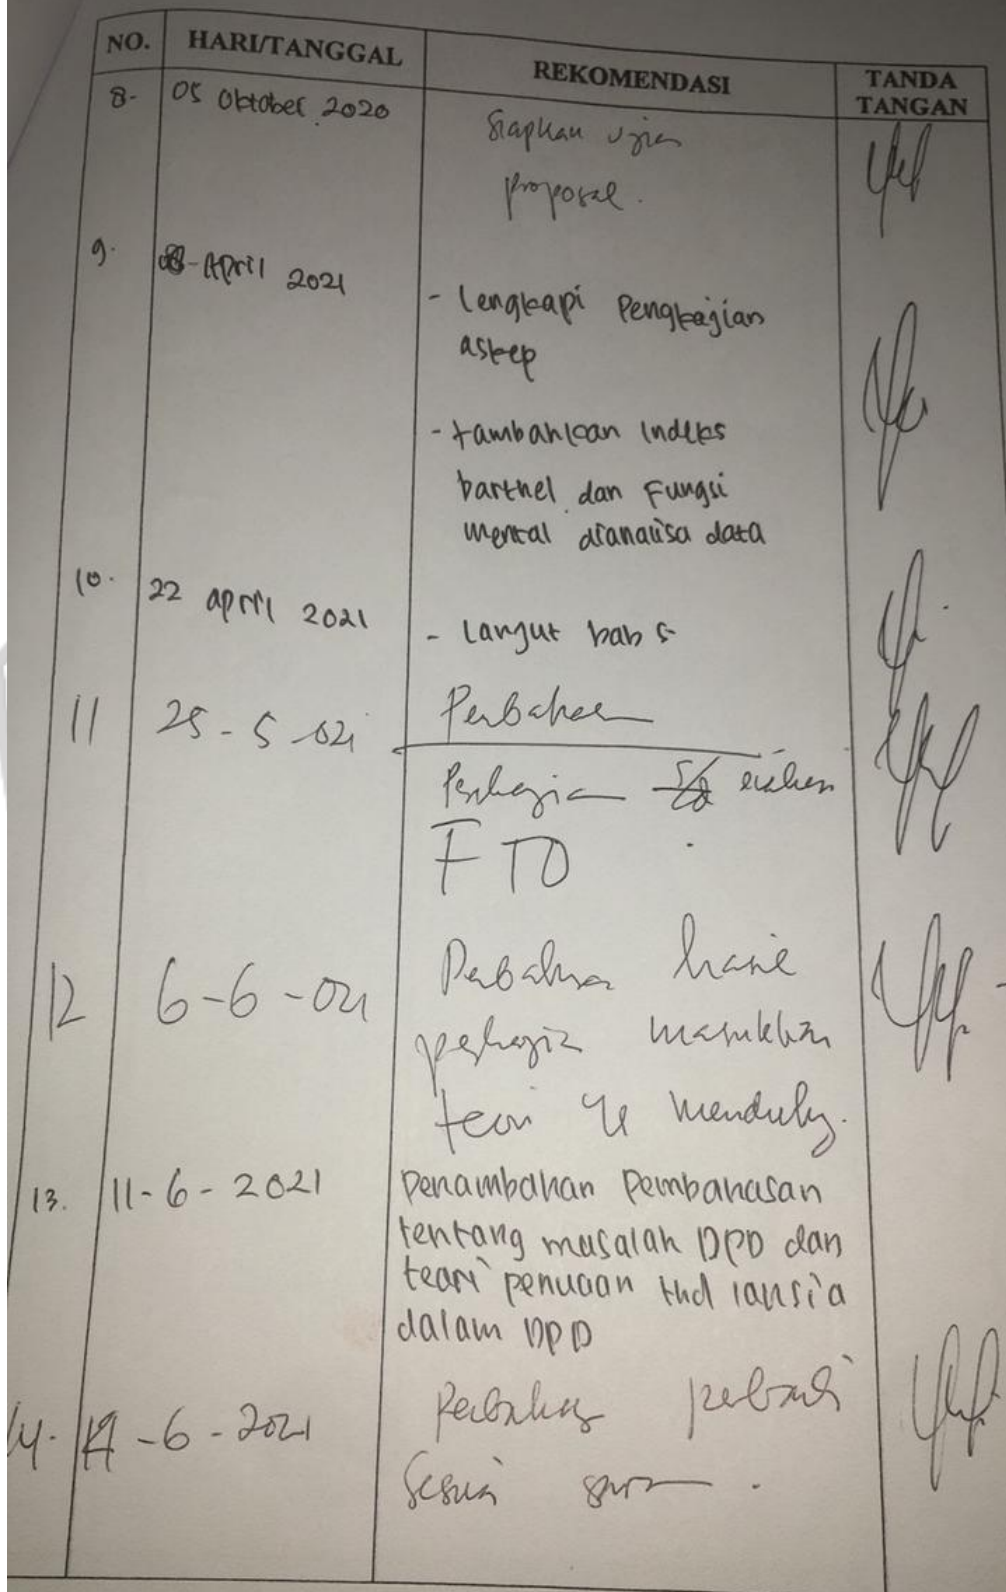 NO. HARI/TANGGAL REKOMENDASI TANDA TANGAN
8. 05 Oktober 2020 Siapkan ujian
proposal.
9. 08-April 2021
- lengkapi Pengkajian
askep
- tambahkan Indeks
barthel dan Fungsi
mental dianalisa data
10. 22 april 2021 - lanjut bab 5
11 25-5-021
FTO
12 6-6-021 hasil
masukkan
teori
13. 11-6-2021 Penambahan Pembahasan
tentang masalah DPD dan
teori penuaan thd lansia
dalam DPD
14. -6-2021
Sesuai saran.